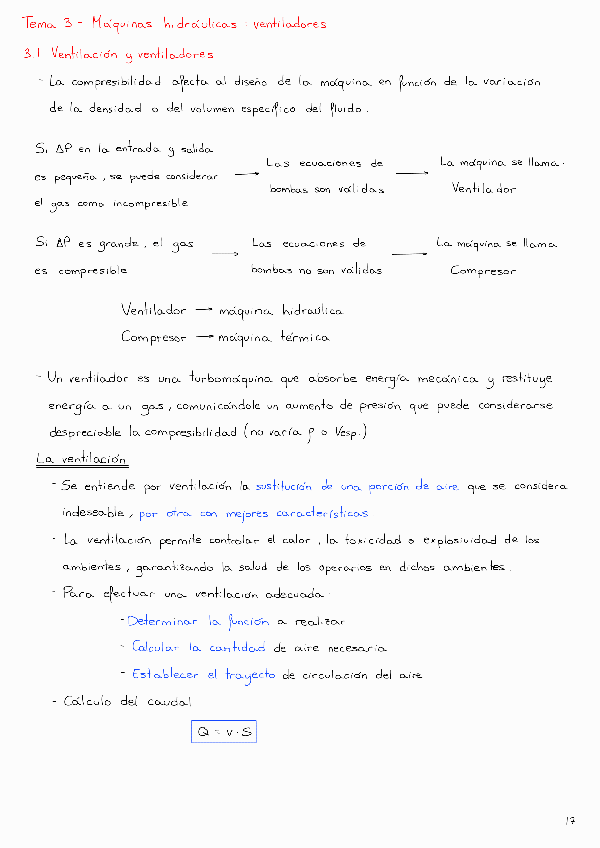 Tema 3 - Máquinas hidráulicas: ventiladores
3.1 Ventilación y ventiladores
- La compresibilidad afecta al diseño de la máquina en función de la variación
de la densidad o del volumen específico del fluido.
Si ΔP en la entrada y salida
es pequeña, se puede considerar
el gas como incompresible
→
Las ecuaciones de
bombas son válidas
→
La máquina se llama.
Ventilador
Si ΔP es grande, el gas
es compresible
→
Las ecuaciones de
bombas no son válidas
→
La máquina se llama
Compresor
Ventilador → máquina hidraúlica
Compresor → máquina térmica
- Un ventilador es una turbomáquina que absorbe energía mecánica y restituye
energía a un gas, comunicándole un aumento de presión que puede considerarse
despreciable la compresibilidad (no varía ρ o Vesp.)
La ventilación
- Se entiende por ventilación la sustitución de una porción de aire que se considera
indeseable, por otra con mejores características
- La ventilación permite controlar el calor, la toxicidad o explosividad de los
ambientes, garantizando la salud de los operarios en dichos ambientes.
- Para efectuar una ventilación adecuada:
- Determinar la función a realizar
- Calcular la cantidad de aire necesaria
- Establecer el trayecto de circulación del aire
- Cálculo del caudal
Q = v · S
17